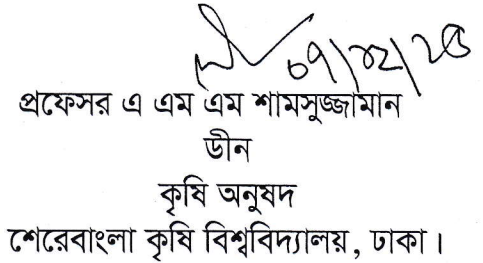 ০৭/১২/২৫
প্রফেসর এ এম এম শামসুজ্জামান
ডীন
কৃষি অনুষদ
শেরেবাংলা কৃষি বিশ্ববিদ্যালয়, ঢাকা।